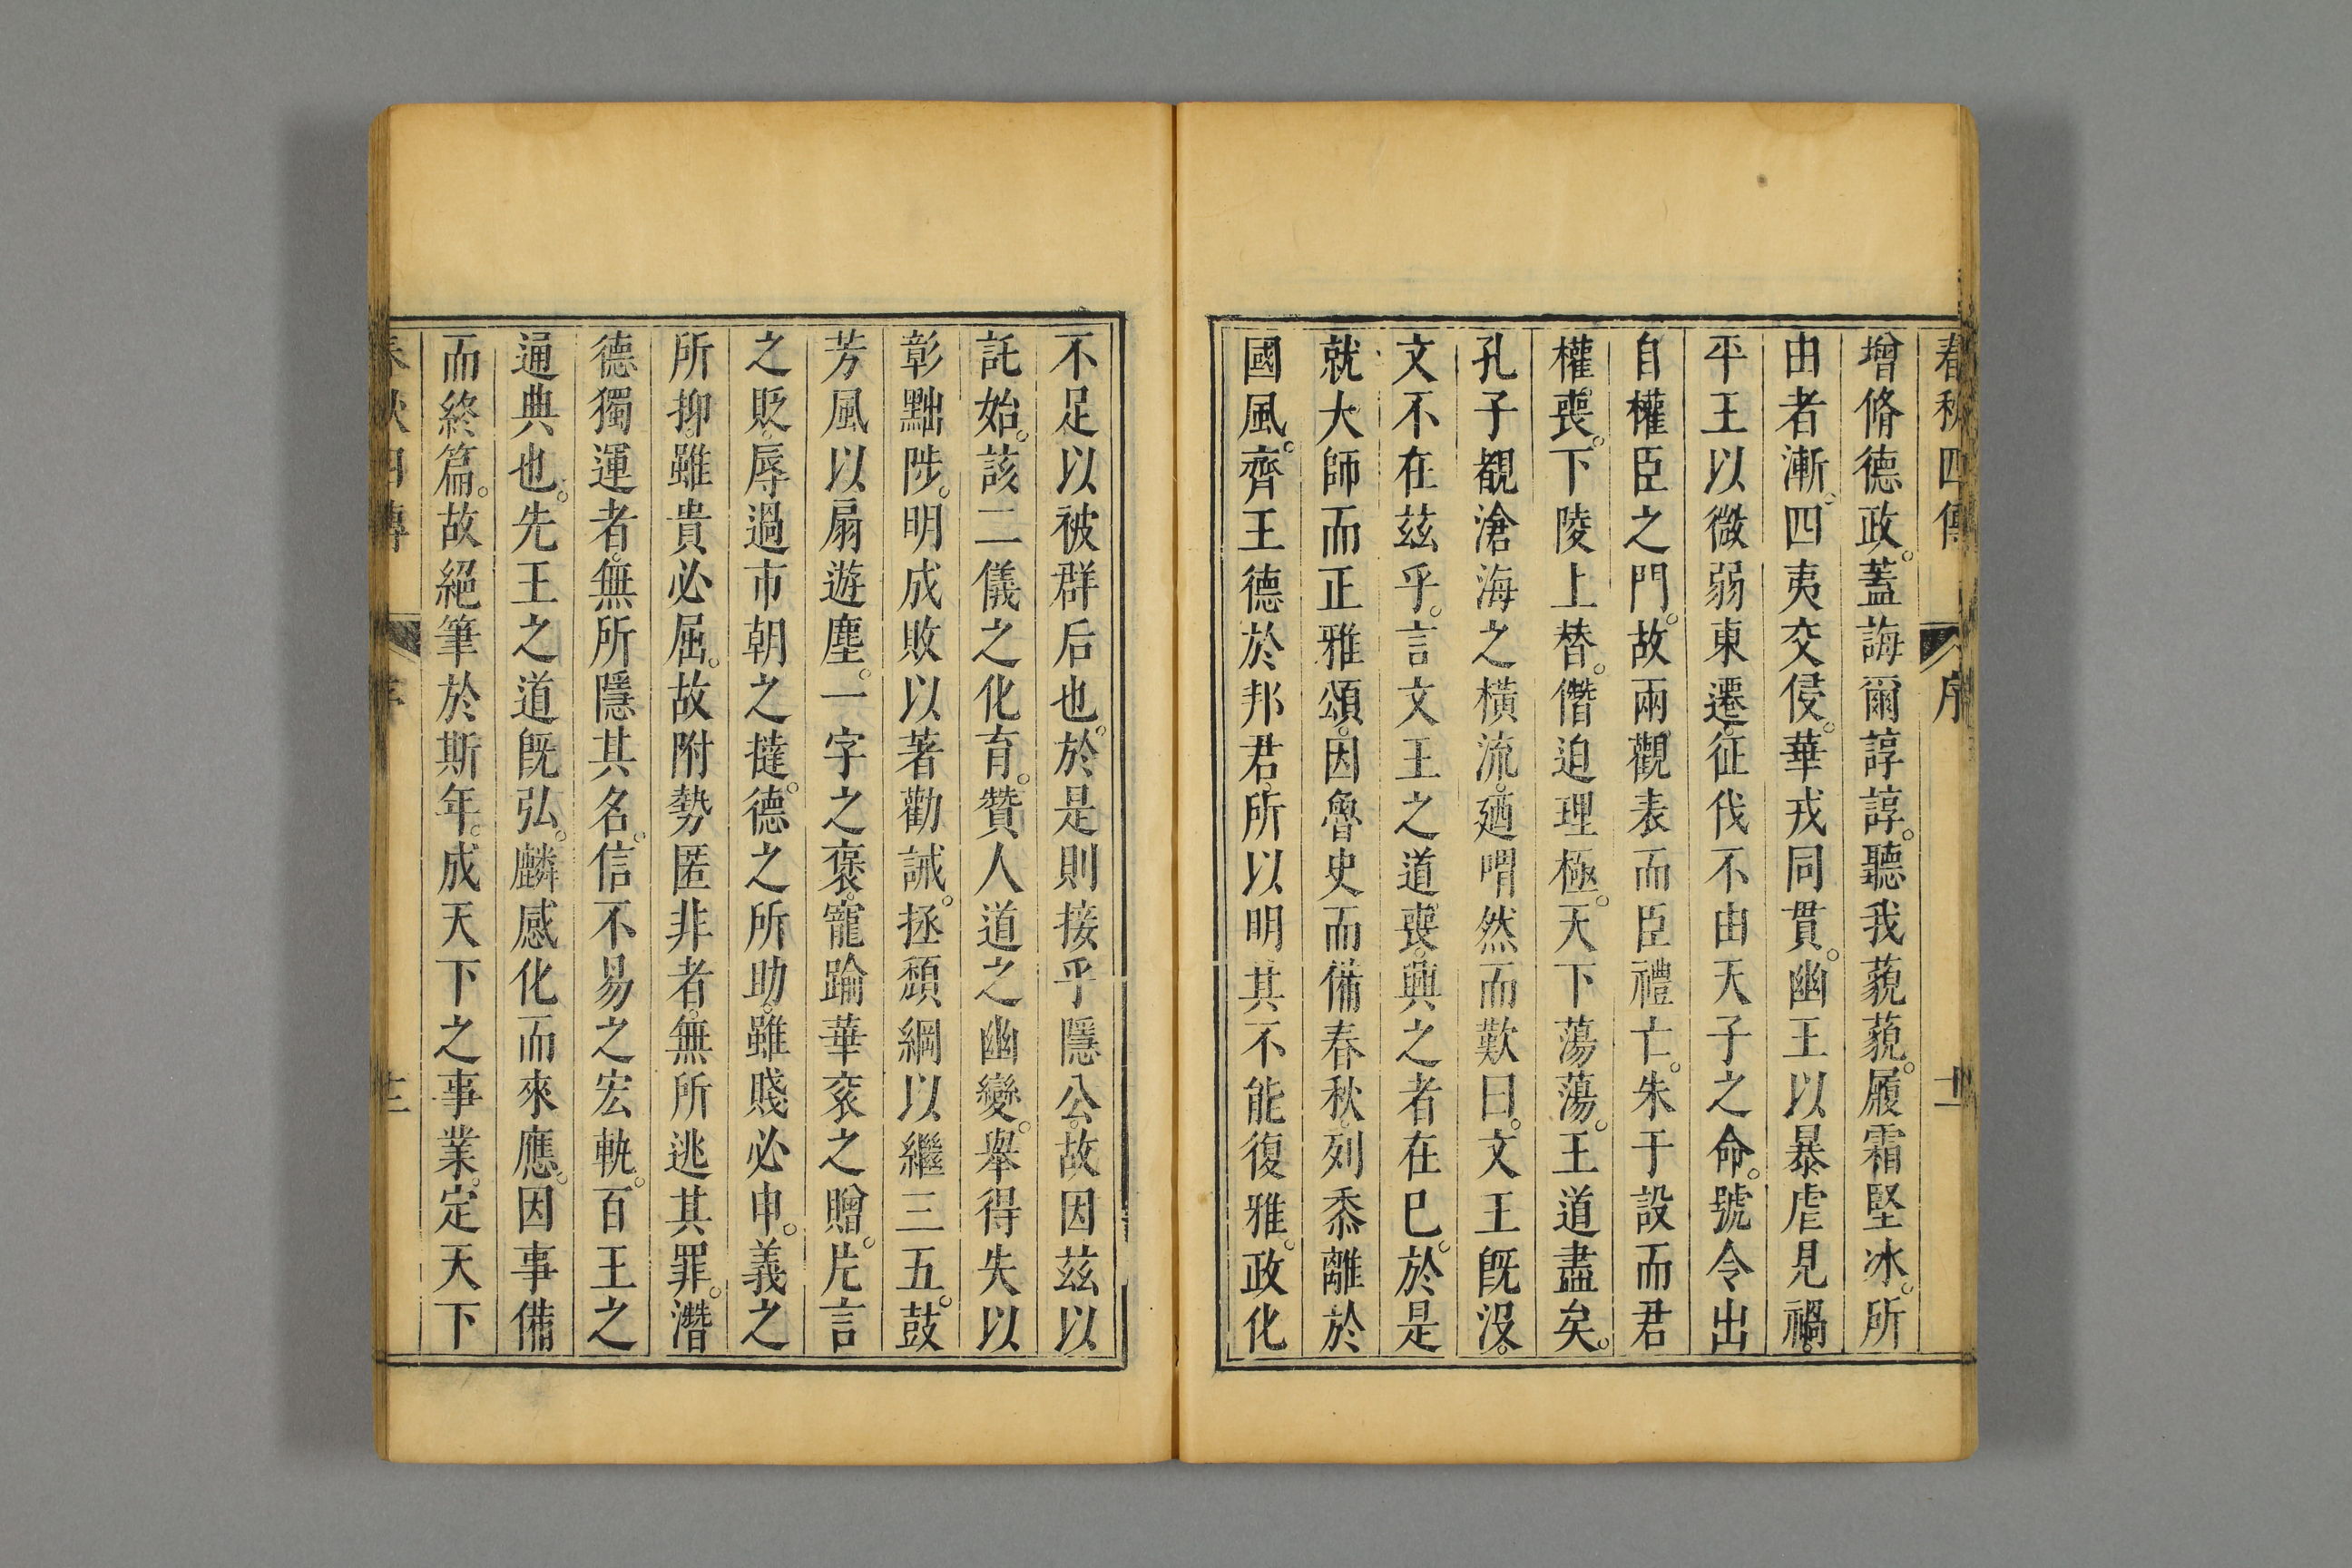 春秋四傳 序 十二
增脩德政。蓋誨爾諄諄。聽我藐藐。履霜堅冰。所
由者漸。四夷交侵。華戎同貫。幽王以暴虐見禍。
平王以微弱東遷。征伐不由天子之命。號令出
自權臣之門。故兩觀表而臣禮亡。朱干設而君
權喪。下陵上替。僭迫理極。天下蕩蕩。王道盡矣。
孔子覩滄海之橫流。廼喟然而歎曰。文王旣沒。
文不在茲乎。言文王之道喪。興之者在已。於是
就大師而正雅頌。因魯史而備春秋。列黍離於
國風。齊王德於邦君。所以明其不能復雅。政化
不足以被群后也。於是則接乎隱公。故因茲以
託始。該二儀之化育。贊人道之幽變。舉得失以
彰黜陟。明成敗以著勸誡。拯頹綱以繼三五。鼓
芳風以扇遊塵。一字之褒。寵踰華袞之贈。片言
之貶。辱過市朝之撻。德之所助。雖賤必申。義之
所抑。雖貴必屈。故附勢匿非者。無所逃其罪。潛
德獨運者。無所隱其名。信不易之宏軌。百王之
通典也。先王之道旣弘。麟感化而來應。因事備
而終篇。故絕筆於斯年。成天下之事業。定天下
春秋四傳